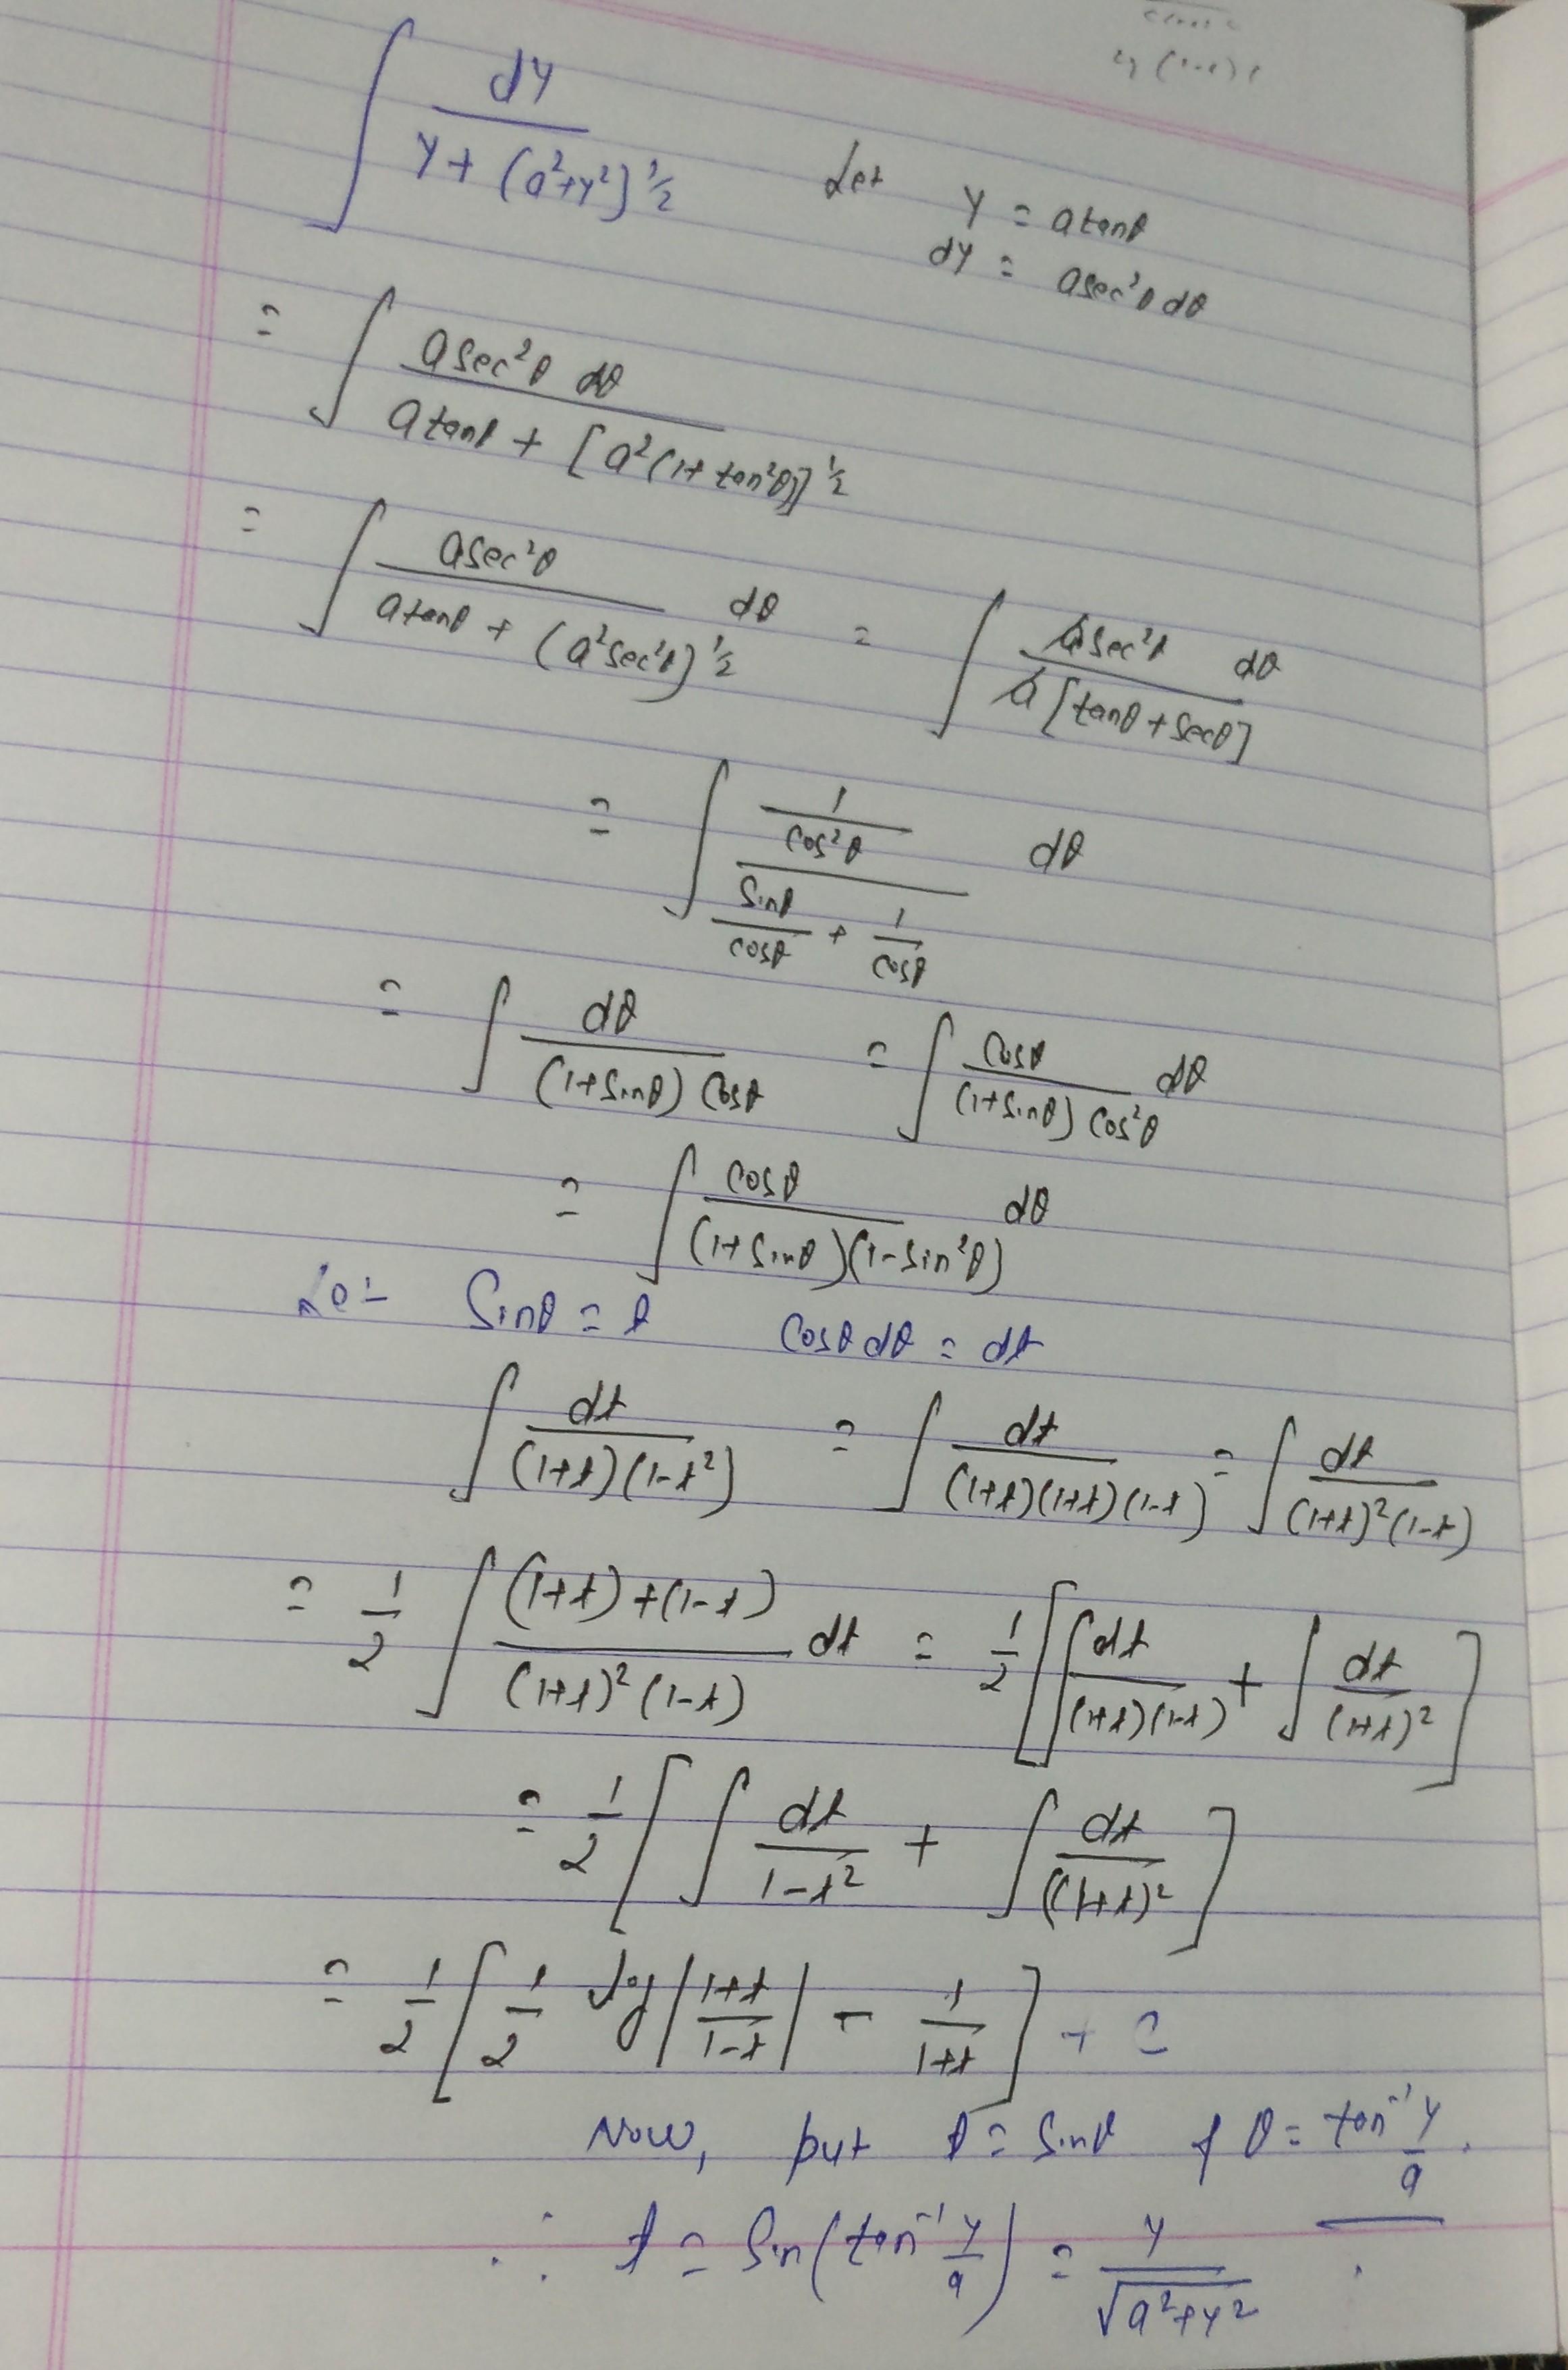 ∫ dy / (y + (a²+y²)^½)   Let y = a tanθ
dy = a sec²θ dθ
= ∫ a sec²θ dθ / (a tanθ + [a²(1+tan²θ)]^½)
= ∫ a sec²θ / (a tanθ + (a² sec²θ)^½) dθ = ∫ a sec²θ / (a[tanθ + secθ]) dθ
= ∫ (1/cos²θ) / (sinθ/cosθ + 1/cosθ) dθ
= ∫ dθ / ((1+sinθ) cosθ) = ∫ cosθ / ((1+sinθ) cos²θ) dθ
= ∫ cosθ / ((1+sinθ)(1-sin²θ)) dθ
Let Sinθ = t   cosθ dθ = dt
∫ dt / ((1+t)(1-t²)) = ∫ dt / ((1+t)(1+t)(1-t)) = ∫ dt / ((1+t)²(1-t))
= 1/2 ∫ ((1+t)+(1-t)) / ((1+t)²(1-t)) dt = 1/2 [∫ dt / ((1+t)(1-t)) + ∫ dt / (1+t)²]
= 1/2 [∫ dt / (1-t²) + ∫ dt / ((1+t)²]
= 1/2 [1/2 log |(1+t)/(1-t)| - 1/(1+t)] + c
Now, put t = Sinθ & θ = tan⁻¹ y/a.
∴ t = Sin(tan⁻¹ y/a) = y / √(a²+y²)